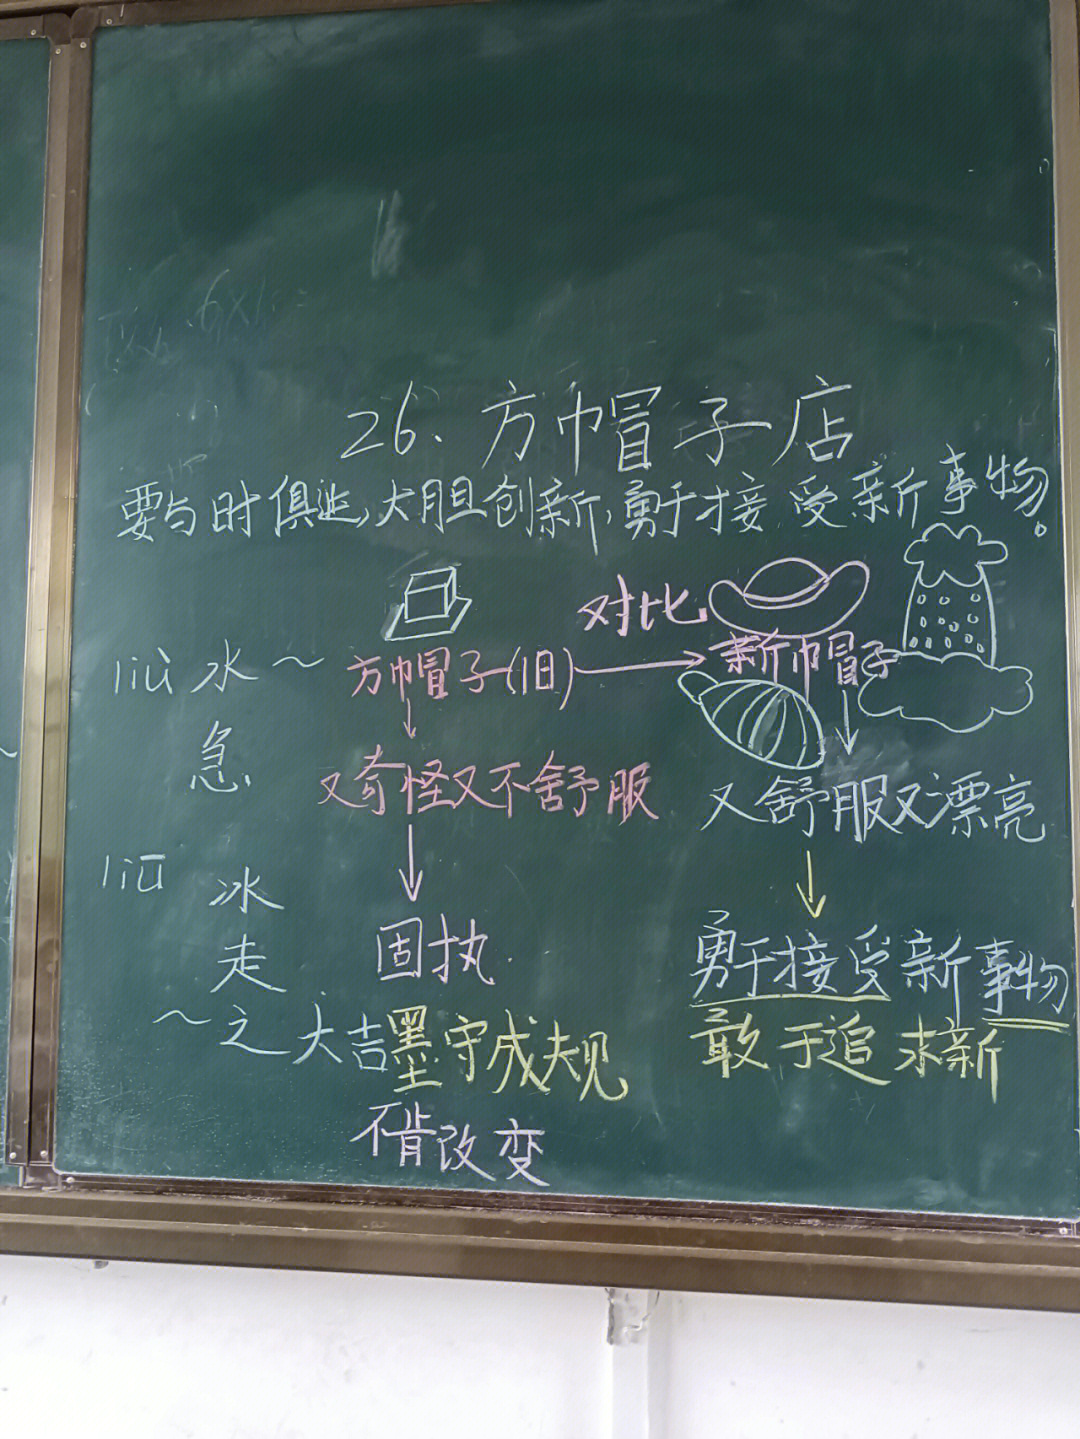 26、方帽子店
要与时俱进,大胆创新,勇于接受新事物。
对比
liù 水~ 方帽子(旧) 新帽子
急
又奇怪又不舒服 又舒服又漂亮
liū 冰
走
固执 勇于接受新事物
~之大吉 墨守成规 敢于追求新
不肯改变